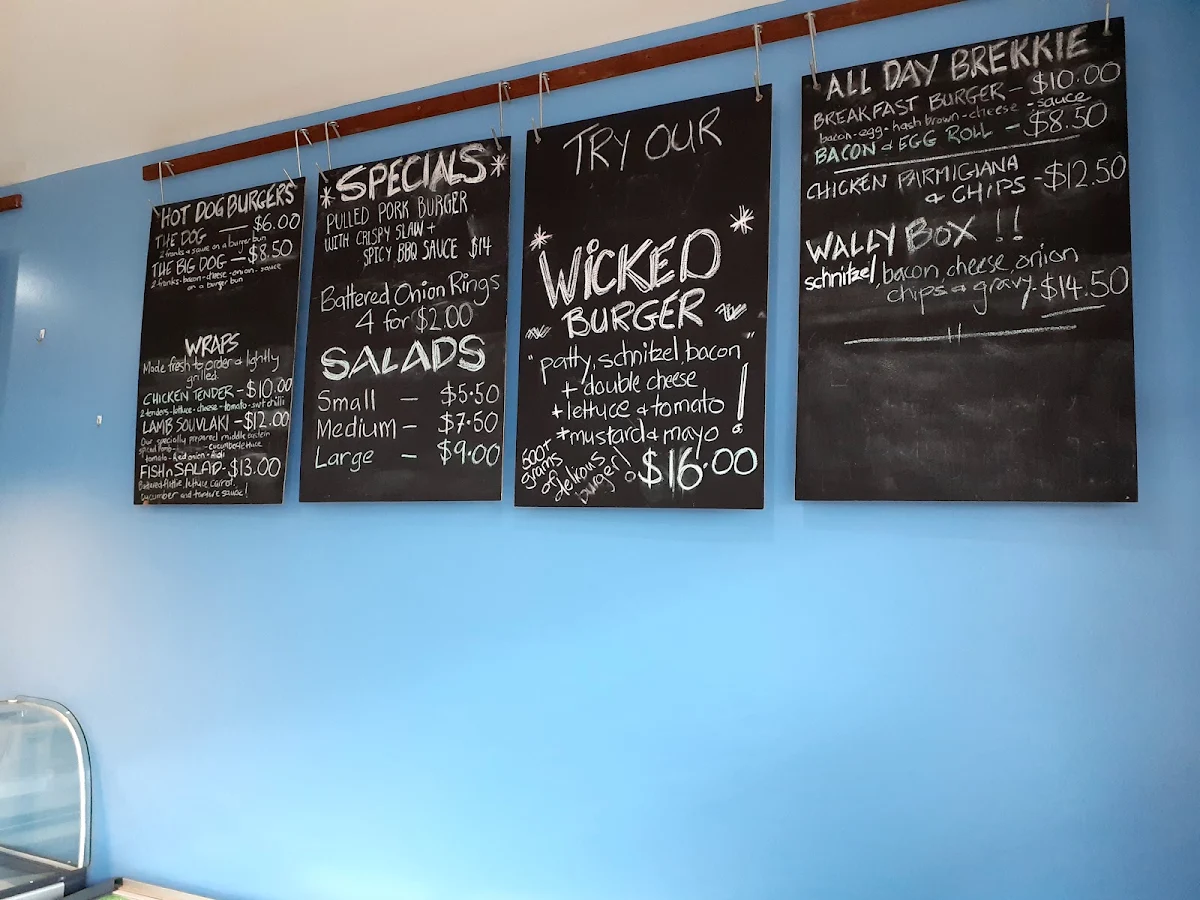 HOT DOG BURGERS
THE DOG — $6.00
2 franks & sauce on a burger bun
THE BIG DOG — $8.50
2 franks-bacon-cheese-onion-sauce
on a burger bun
WRAPS
Made fresh to order & lightly
grilled.
CHICKEN TENDER - $10.00
2 tenders-lettuce-cheese-tomato-swt chilli
LAMB SOUVLAKI - $12.00
Our specially prepared middle eastern
spiced lamb cucumber-lettuce
tomato-Red onion
FISH n SALAD - $13.00
Battered flattie, lettuce carrot,
cucumber and tartare sauce!
*SPECIALS*
PULLED PORK BURGER
WITH CRISPY SLAW +
SPICY BBQ SAUCE $14
Battered Onion Rings
4 for $2.00
SALADS
Small - $5.50
Medium - $7.50
Large - $9.00
TRY OUR
WICKED
BURGER
"patty, schnitzel, bacon"
+ double cheese
+ lettuce & tomato
+ mustard & mayo!
500+
grams
of
delicous
burger!
$16.00
ALL DAY BREKKIE
BREAKFAST BURGER - $10.00
bacon-egg-hash brown-cheese-sauce
BACON & EGG ROLL - $8.50
CHICKEN PARMIGIANA
& CHIPS - $12.50
WALLY BOX !!
schnitzel, bacon, cheese, onion
chips & gravy - $14.50